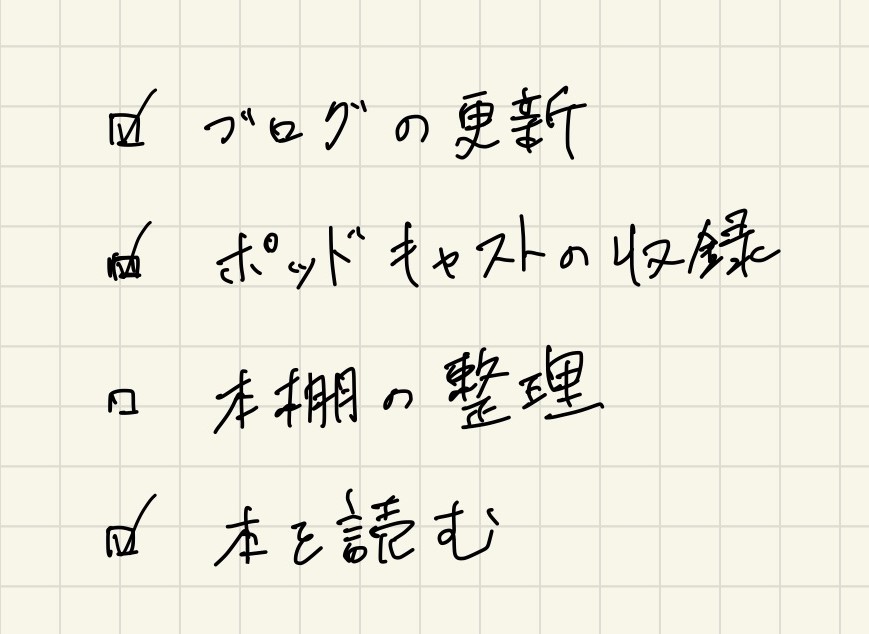 ☑ ブログの更新
☑ ポッドキャストの収録
☐ 本棚の整理
☑ 本を読む